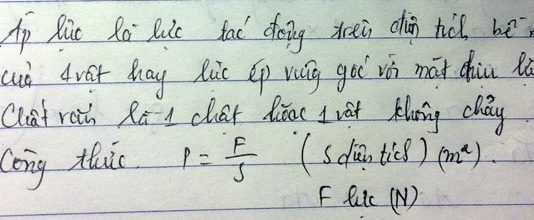 Áp lực là lực tác động trên diện tích bề
của 1 vật hay lực ép vuông góc với mặt
Chất rắn là 1 chất hoặc 1 vật không chảy
Công thức P = F/S (S diện tích) (m²).
F lực (N)